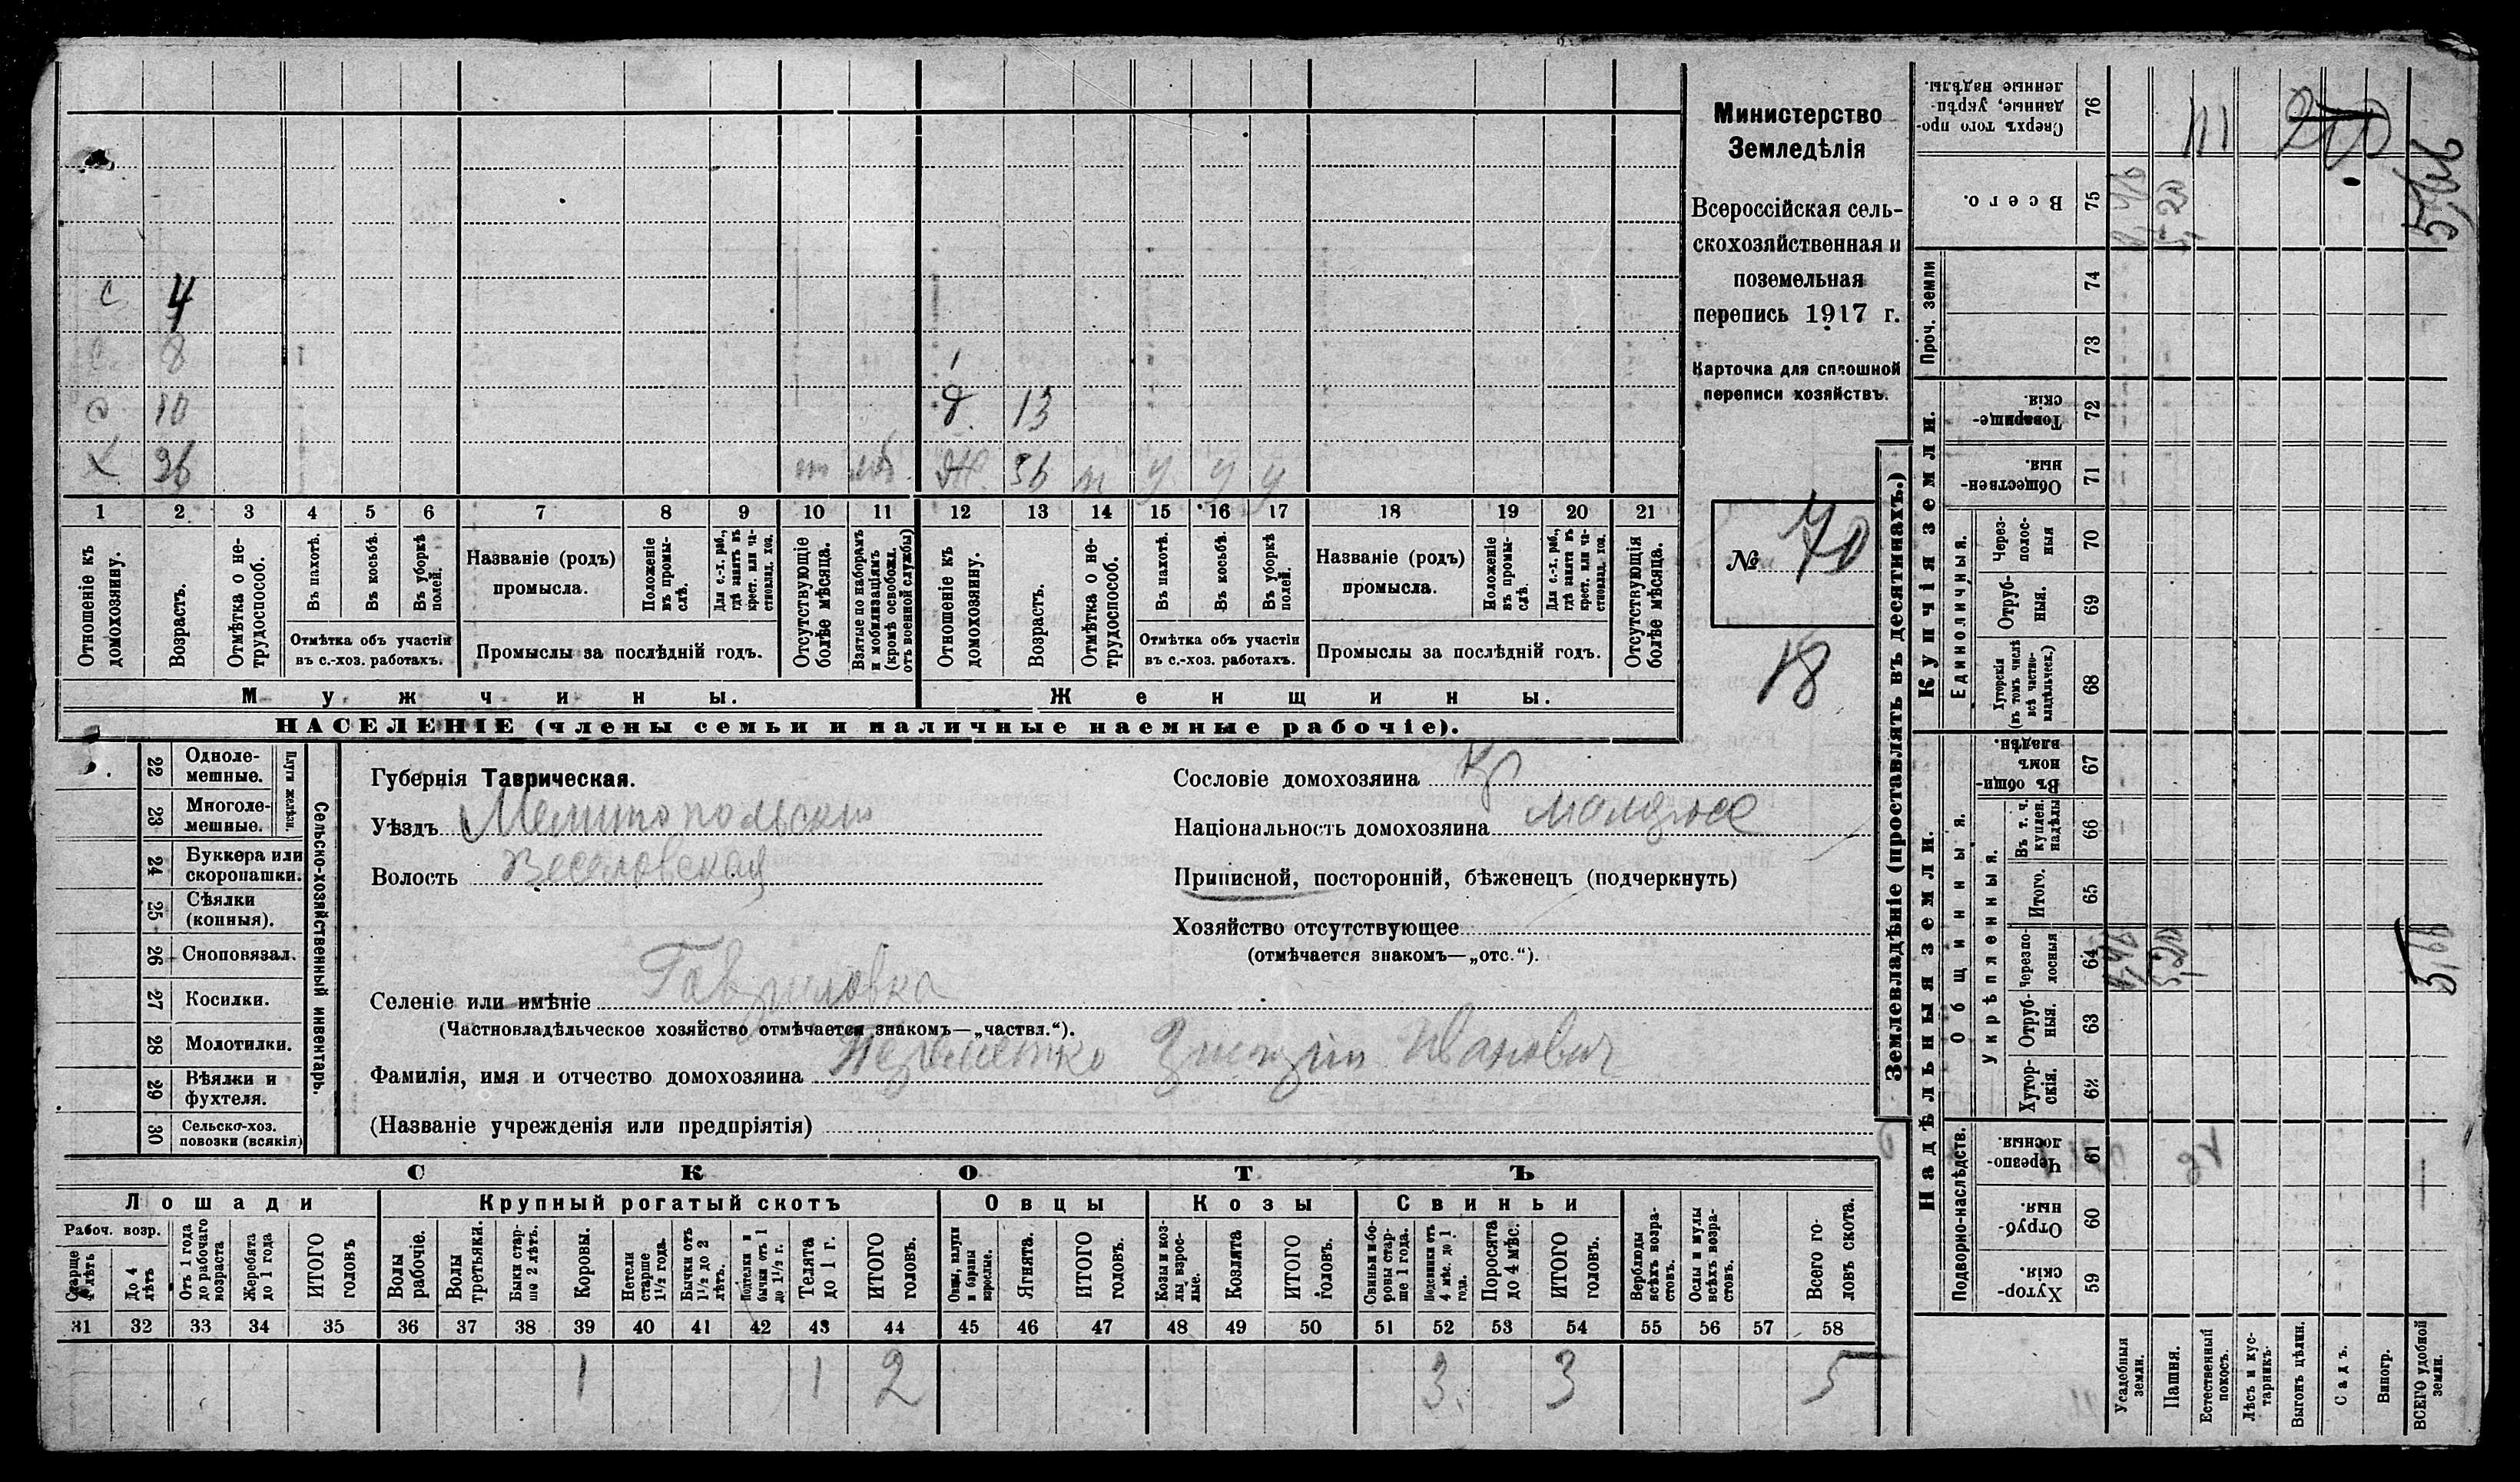 Министерство
Земледѣлія
Всероссійская сель-
скохозяйственная и
поземельная
перепись 1917 г.
Карточка для сплошной
переписи хозяйствъ.
№ 70
18
с 4
8
10 д. 13
х 36 т моб. ж. 36 п у у у
1 2 3 4 5 6 7 8 9 10 11 12 13 14 15 16 17 18 19 20 21
Отношеніе къ домохозяину.
Возрастъ.
Отмѣтка о не-трудоспособ.
Въ пахотѣ.
Въ косьбѣ.
Въ уборкѣ полей.
Отмѣтка объ участіи
въ с.-хоз. работахъ.
Названіе (родъ)
промысла.
Положеніе въ промы-слѣ.
Для с.-х. раб., гдѣ занятъ въ крест. или ча-стновлад. хоз.
Промыслы за послѣдній годъ.
Отсутствующіе болѣе мѣсяца.
Взятые по наборамъ и мобилизаціямъ (кромѣ освобожд. отъ военной службы)
Отношеніе къ домохозяину.
Возрастъ.
Отмѣтка о не-трудоспособ.
Въ пахотѣ.
Въ косьбѣ.
Въ уборкѣ полей.
Отмѣтка объ участіи
въ с.-хоз. работахъ.
Названіе (родъ)
промысла.
Положеніе въ промы-слѣ.
Для с.-х. раб., гдѣ занята въ крест. или ча-стновлад. хоз.
Промыслы за послѣдній годъ.
Отсутствующія болѣе мѣсяца.
Мужчины.
Женщины.
НАСЕЛЕНІЕ (члены семьи и наличные наемные рабочіе).
Сельско-хозяйственный инвентарь.
Плуги желѣзн.
22 Одноле-мешные.
23 Многоле-мешные.
24 Буккера или скоропашки.
25 Сѣялки (конныя).
26 Сноповязал.
27 Косилки.
28 Молотилки.
29 Вѣялки и фухтеля.
30 Сельско-хоз. повозки (всякія)
Губернія Таврическая.
Уѣздъ Мелитопольский
Волость Веселовская
Селеніе или имѣніе Гавриловка
(Частновладѣльческое хозяйство отмѣчается знакомъ—„частвл.“).
Фамилія, имя и отчество домохозяина Иванович
(Названіе учрежденія или предпріятія)
Сословіе домохозяина Кр
Національность домохозяина малорос
Приписной, посторонній, бѣженецъ (подчеркнуть)
Хозяйство отсутствующее
(отмѣчается знакомъ—„отс.“).
СКОТЪ
Лошади
Крупный рогатый скотъ
Овцы
Козы
Свиньи
Рабоч. возр.
Старше 4 лѣтъ
До 4 лѣтъ
Отъ 1 года до рабочаго возраста
Жеребята до 1 года
ИТОГО головъ
Волы рабочіе.
Волы третьяки.
Быки стар-ше 2 лѣтъ.
Коровы.
Нетели старше 1½ года.
Бычки отъ 1½ до 2 лѣтъ.
Подтелки и бычки отъ 1 до 1½ г.
Телята до 1 г.
ИТОГО головъ.
Овцы, валухи и бараны взрослые.
Ягнята.
ИТОГО головъ.
Козы и коз-лы взрос-лые.
Козлята
ИТОГО головъ.
Свиньи и бо-ровы стар-ше 1 года.
Подсвинки отъ 4 мѣс. до 1 года.
Поросята до 4 мѣс.
ИТОГО головъ.
Верблюды всѣхъ возра-стовъ.
Ослы и мулы всѣхъ возра-стовъ.
Всего го-ловъ скота.
31 32 33 34 35 36 37 38 39 40 41 42 43 44 45 46 47 48 49 50 51 52 53 54 55 56 57 58
1 1 2 3. 3 5
Землевладѣніе (проставлять въ десятинахъ.)
Надѣльныя земли.
Купчія земли.
Проч. земли
Подворно-наслѣдств.
Общинныя.
Укрѣпленныя.
Единоличныя.
59 Хутор-скія.
60 Отруб-ныя.
61 Черезпо-лосныя.
62 Хутор-скія.
63 Отруб-ныя.
64 Черезпо-лосныя
65 Итого.
66 Въ т. ч. куплен. надѣлы
67 Въ общи-номъ владѣн.
68 Хуторскія (въ томъ числѣ всѣ частно-владѣльческ.)
69 Отруб-ныя.
70 Через-полос-ныя
71 Обществен-ныя.
72 Товарище-скія.
73
74
75 Всего.
76 Сверхъ того про-данные, укрѣп-ленные надѣлы.
Усадебныя земли.
Пашня.
Естественный покосъ.
Лѣсъ и кус-тарникъ.
Выгонъ цѣлин.
Садъ.
Виногр.
ВСЕГО удобной земли.